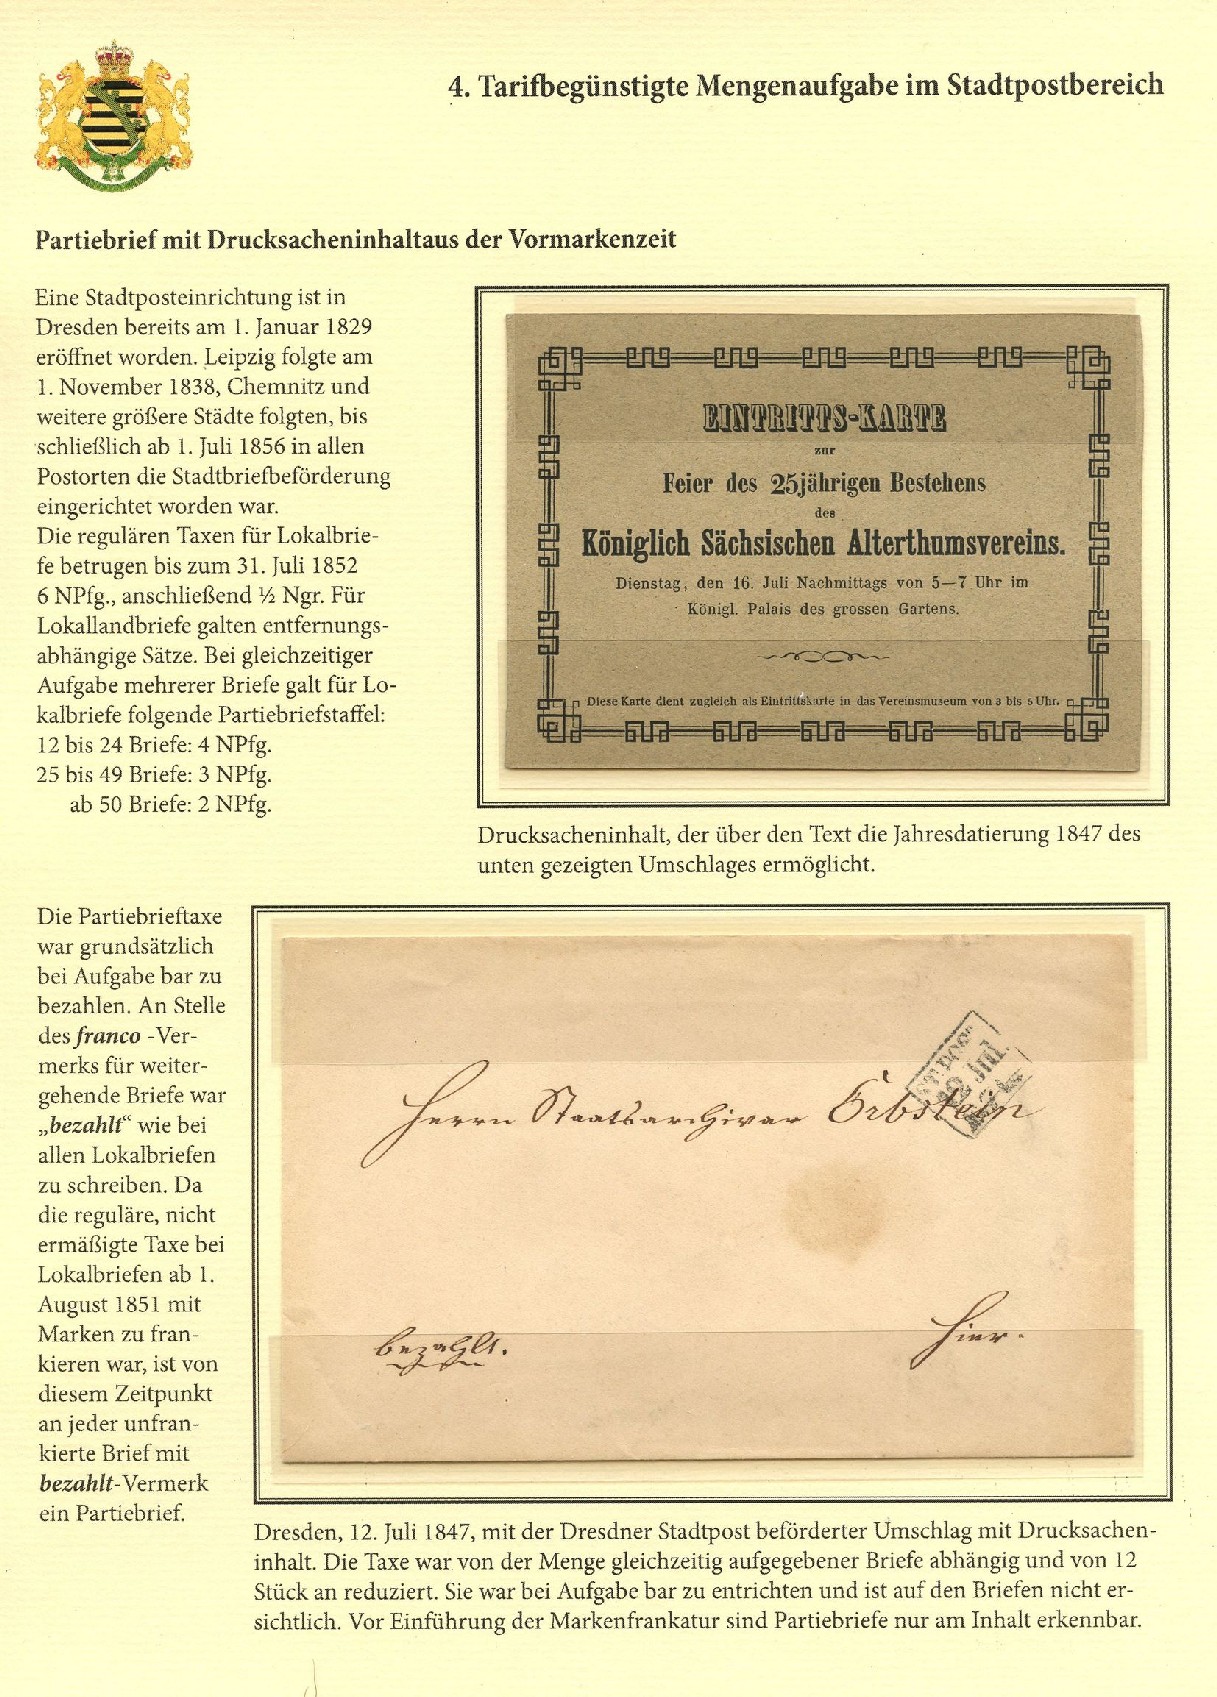 4. Tarifbegünstigte Mengenaufgabe im Stadtpostbereich
Partiebrief mit Drucksacheninhaltaus der Vormarkenzeit
Eine Stadtposteinrichtung ist in
Dresden bereits am 1. Januar 1829
eröffnet worden. Leipzig folgte am
1. November 1838, Chemnitz und
weitere größere Städte folgten, bis
schließlich ab 1. Juli 1856 in allen
Postorten die Stadtbriefbeförderung
eingerichtet worden war.
Die regulären Taxen für Lokalbrie-
fe betrugen bis zum 31. Juli 1852
6 NPfg., anschließend ½ Ngr. Für
Lokallandbriefe galten entfernungs-
abhängige Sätze. Bei gleichzeitiger
Aufgabe mehrerer Briefe galt für Lo-
kalbriefe folgende Partiebriefstaffel:
12 bis 24 Briefe: 4 NPfg.
25 bis 49 Briefe: 3 NPfg.
ab 50 Briefe: 2 NPfg.
EINTRITTS-KARTE
zur
Feier des 25jährigen Bestehens
des
Königlich Sächsischen Alterthumsvereins.
Dienstag, den 16. Juli Nachmittags von 5—7 Uhr im
Königl. Palais des grossen Gartens.
Diese Karte dient zugleich als Eintrittskarte in das Vereinsmuseum von 3 bis 5 Uhr.
Drucksacheninhalt, der über den Text die Jahresdatierung 1847 des
unten gezeigten Umschlages ermöglicht.
Die Partiebrieftaxe
war grundsätzlich
bei Aufgabe bar zu
bezahlen. An Stelle
des franco -Ver-
merks für weiter-
gehende Briefe war
„bezahlt“ wie bei
allen Lokalbriefen
zu schreiben. Da
die reguläre, nicht
ermäßigte Taxe bei
Lokalbriefen ab 1.
August 1851 mit
Marken zu fran-
kieren war, ist von
diesem Zeitpunkt
an jeder unfran-
kierte Brief mit
bezahlt-Vermerk
ein Partiebrief.
Jul.
Herrn Staatsarchivar Erbstein
bezahlt.
Hier.
Dresden, 12. Juli 1847, mit der Dresdner Stadtpost beförderter Umschlag mit Drucksachen-
inhalt. Die Taxe war von der Menge gleichzeitig aufgegebener Briefe abhängig und von 12
Stück an reduziert. Sie war bei Aufgabe bar zu entrichten und ist auf den Briefen nicht er-
sichtlich. Vor Einführung der Markenfrankatur sind Partiebriefe nur am Inhalt erkennbar.